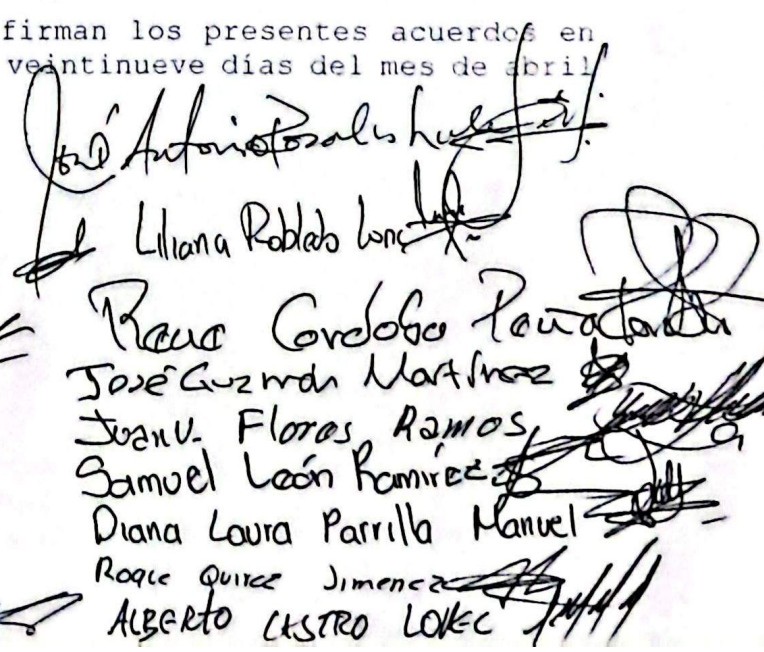 firman los presentes acuerdos en
veintinueve días del mes de abril
José Antonio Rosales
Liliana Robledo
Cordoba
José Guzmán Martínez
Juan V. Flores Ramos
Samuel León Ramírez
Diana Laura Parrilla Manuel
Roque Quiroz Jimenez
ALBERTO CASTRO